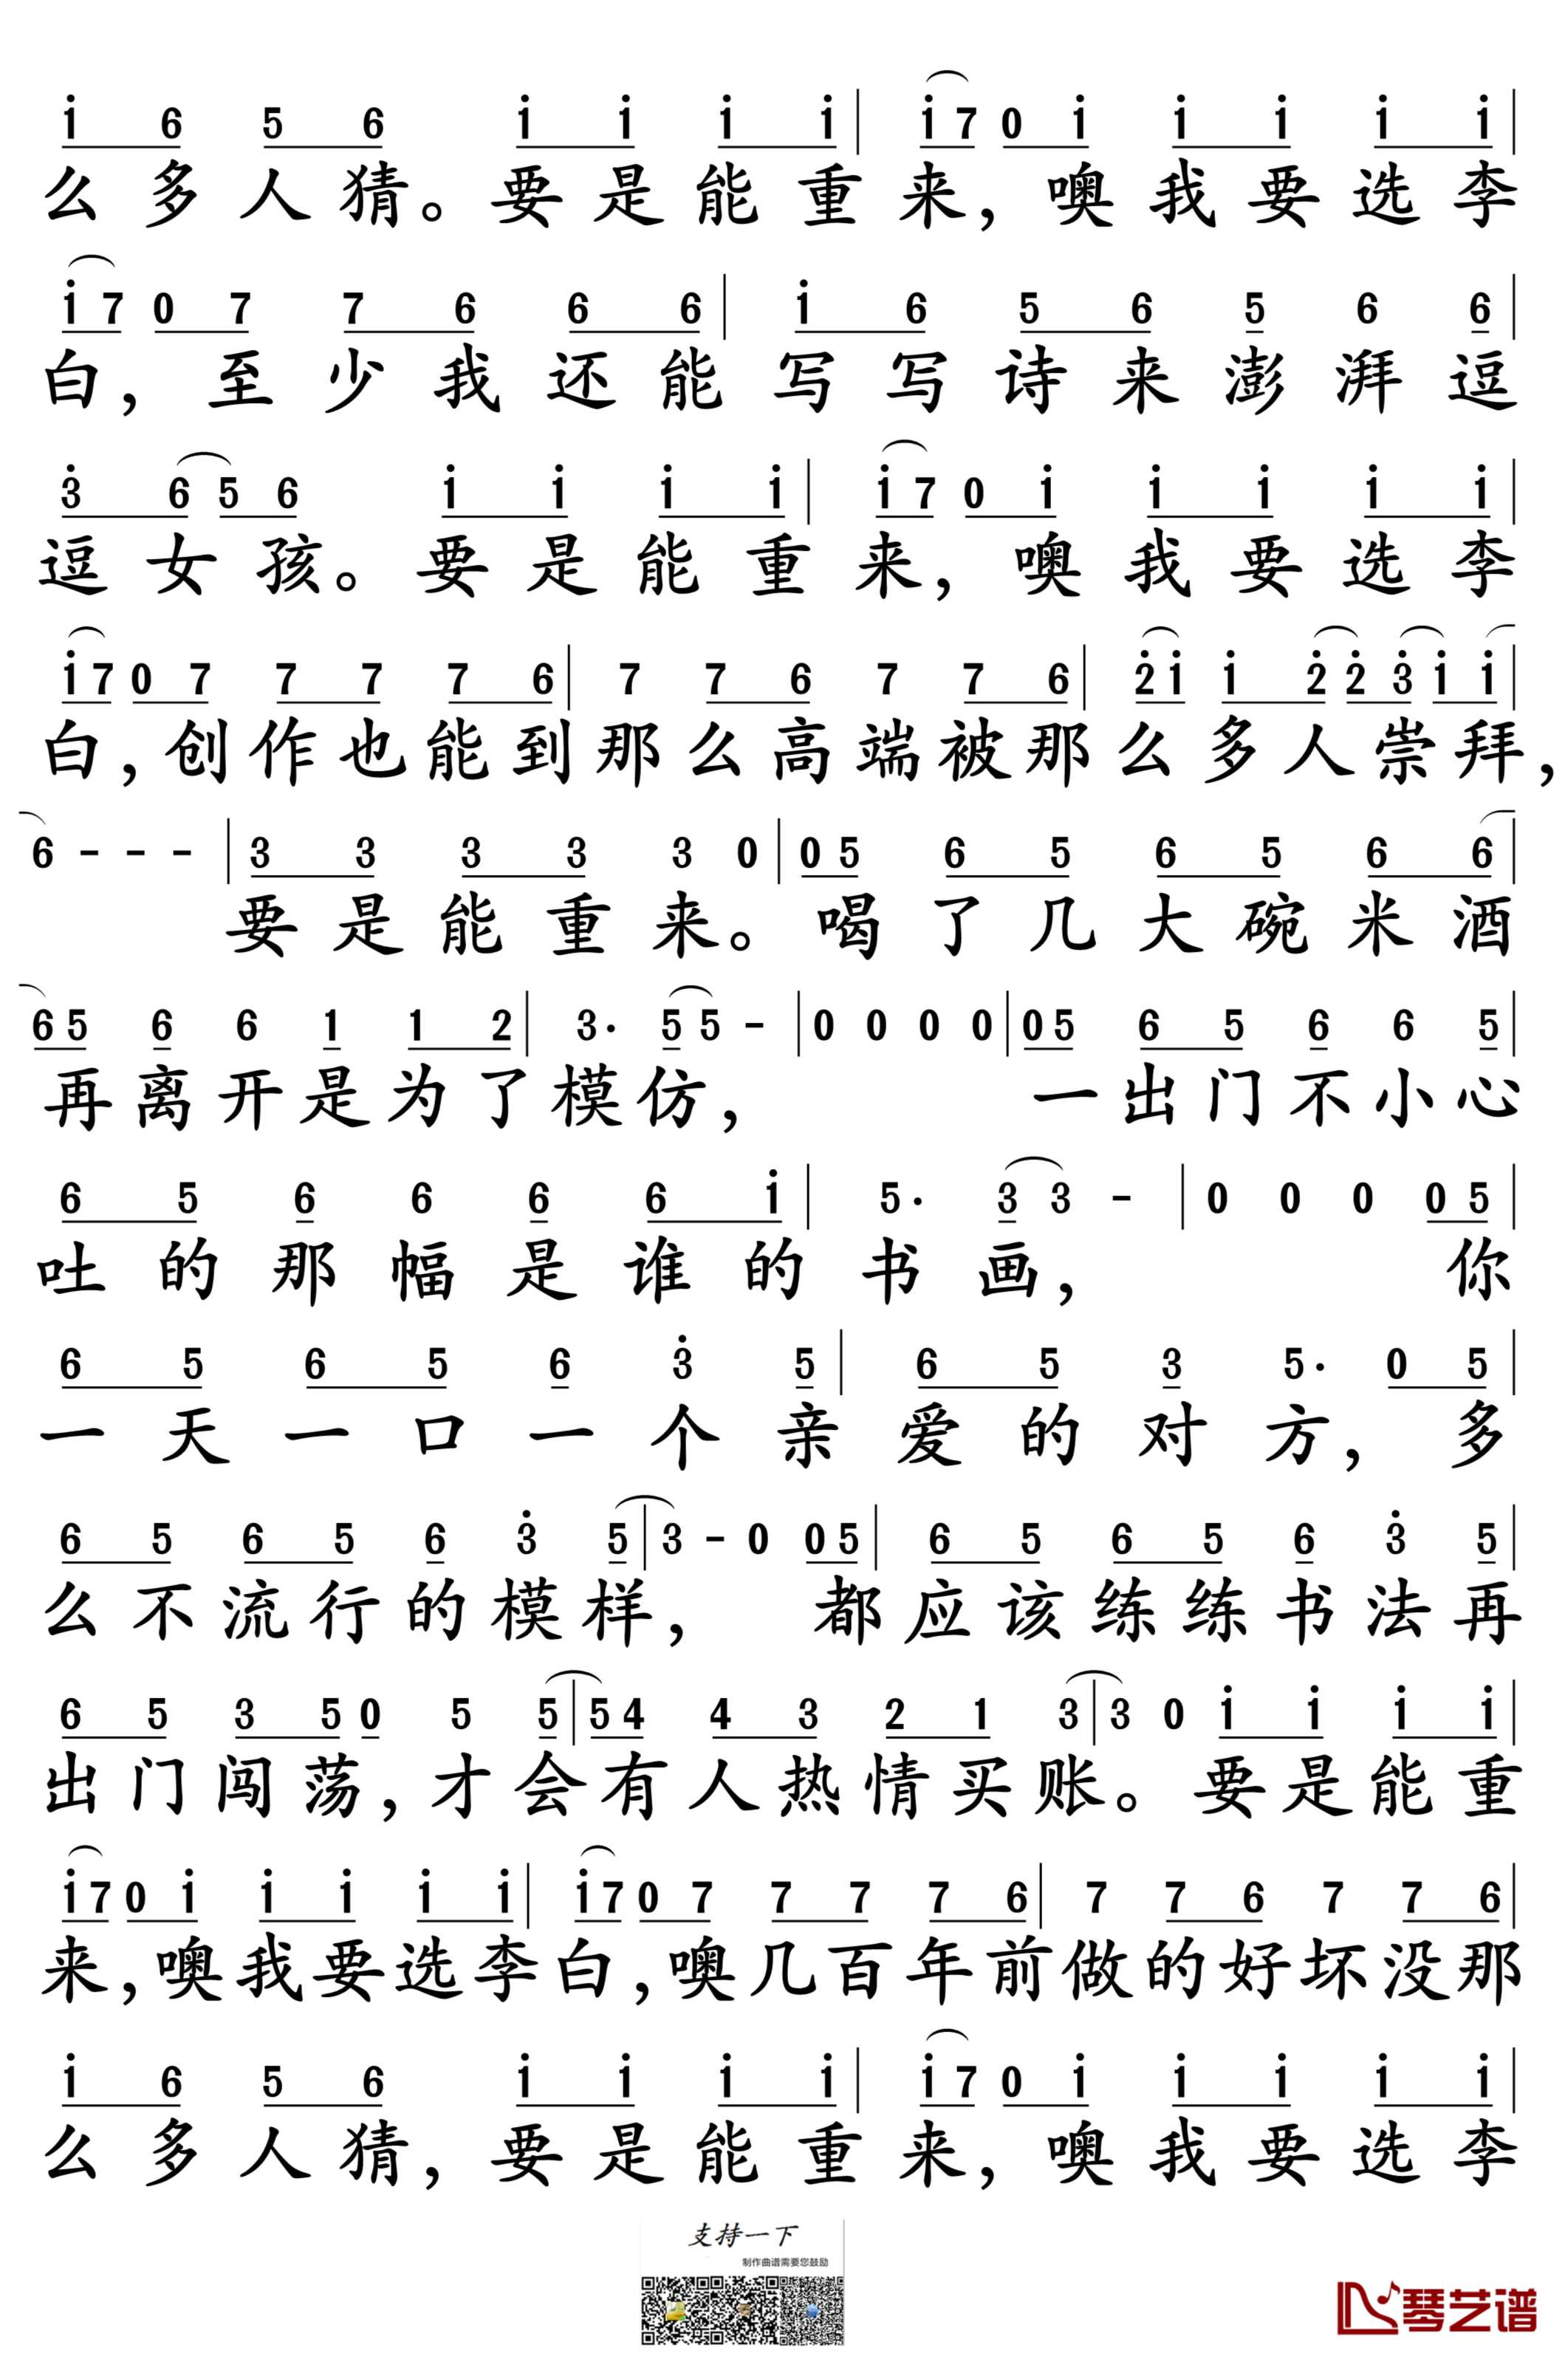 i 6 5 6 i i i i | i 7 0 i i i i i |
么多人猜。要是能重来，噢我要选李
i 7 0 7 7 6 6 6 | i 6 5 6 5 6 6 |
白，至少我还能写写诗来澎湃逗
3 6 5 6 i i i i | i 7 0 i i i i i |
逗女孩。要是能重来，噢我要选李
i 7 0 7 7 7 7 6 | 7 7 6 7 7 6 | 2 i i 2 2 3 i i |
白，创作也能到那么高端被那么多人崇拜，
6 - - - | 3 3 3 3 3 0 | 0 5 6 5 6 5 6 6 |
要是能重来。喝了几大碗米酒
6 5 6 6 1 1 2 | 3· 5 5 - | 0 0 0 0 | 0 5 6 5 6 6 5 |
再离开是为了模仿，一出门不小心
6 5 6 6 6 6 i | 5· 3 3 - | 0 0 0 0 5 |
吐的那幅是谁的书画，你
6 5 6 5 6 3 5 | 6 5 3 5· 0 5 |
一天一口一个亲爱的对方，多
6 5 6 5 6 3 5 | 3 - 0 0 5 | 6 5 6 5 6 3 5 |
么不流行的模样，都应该练练书法再
6 5 3 5 0 5 5 | 5 4 4 3 2 1 3 | 3 0 i i i i |
出门闯荡，才会有人热情买账。要是能重
i 7 0 i i i i i | i 7 0 7 7 7 7 6 | 7 7 6 7 7 6 |
来，噢我要选李白，噢几百年前做的好坏没那
i 6 5 6 i i i i | i 7 0 i i i i i |
么多人猜，要是能重来，噢我要选李
支持一下
制作曲谱需要您鼓励
琴艺谱